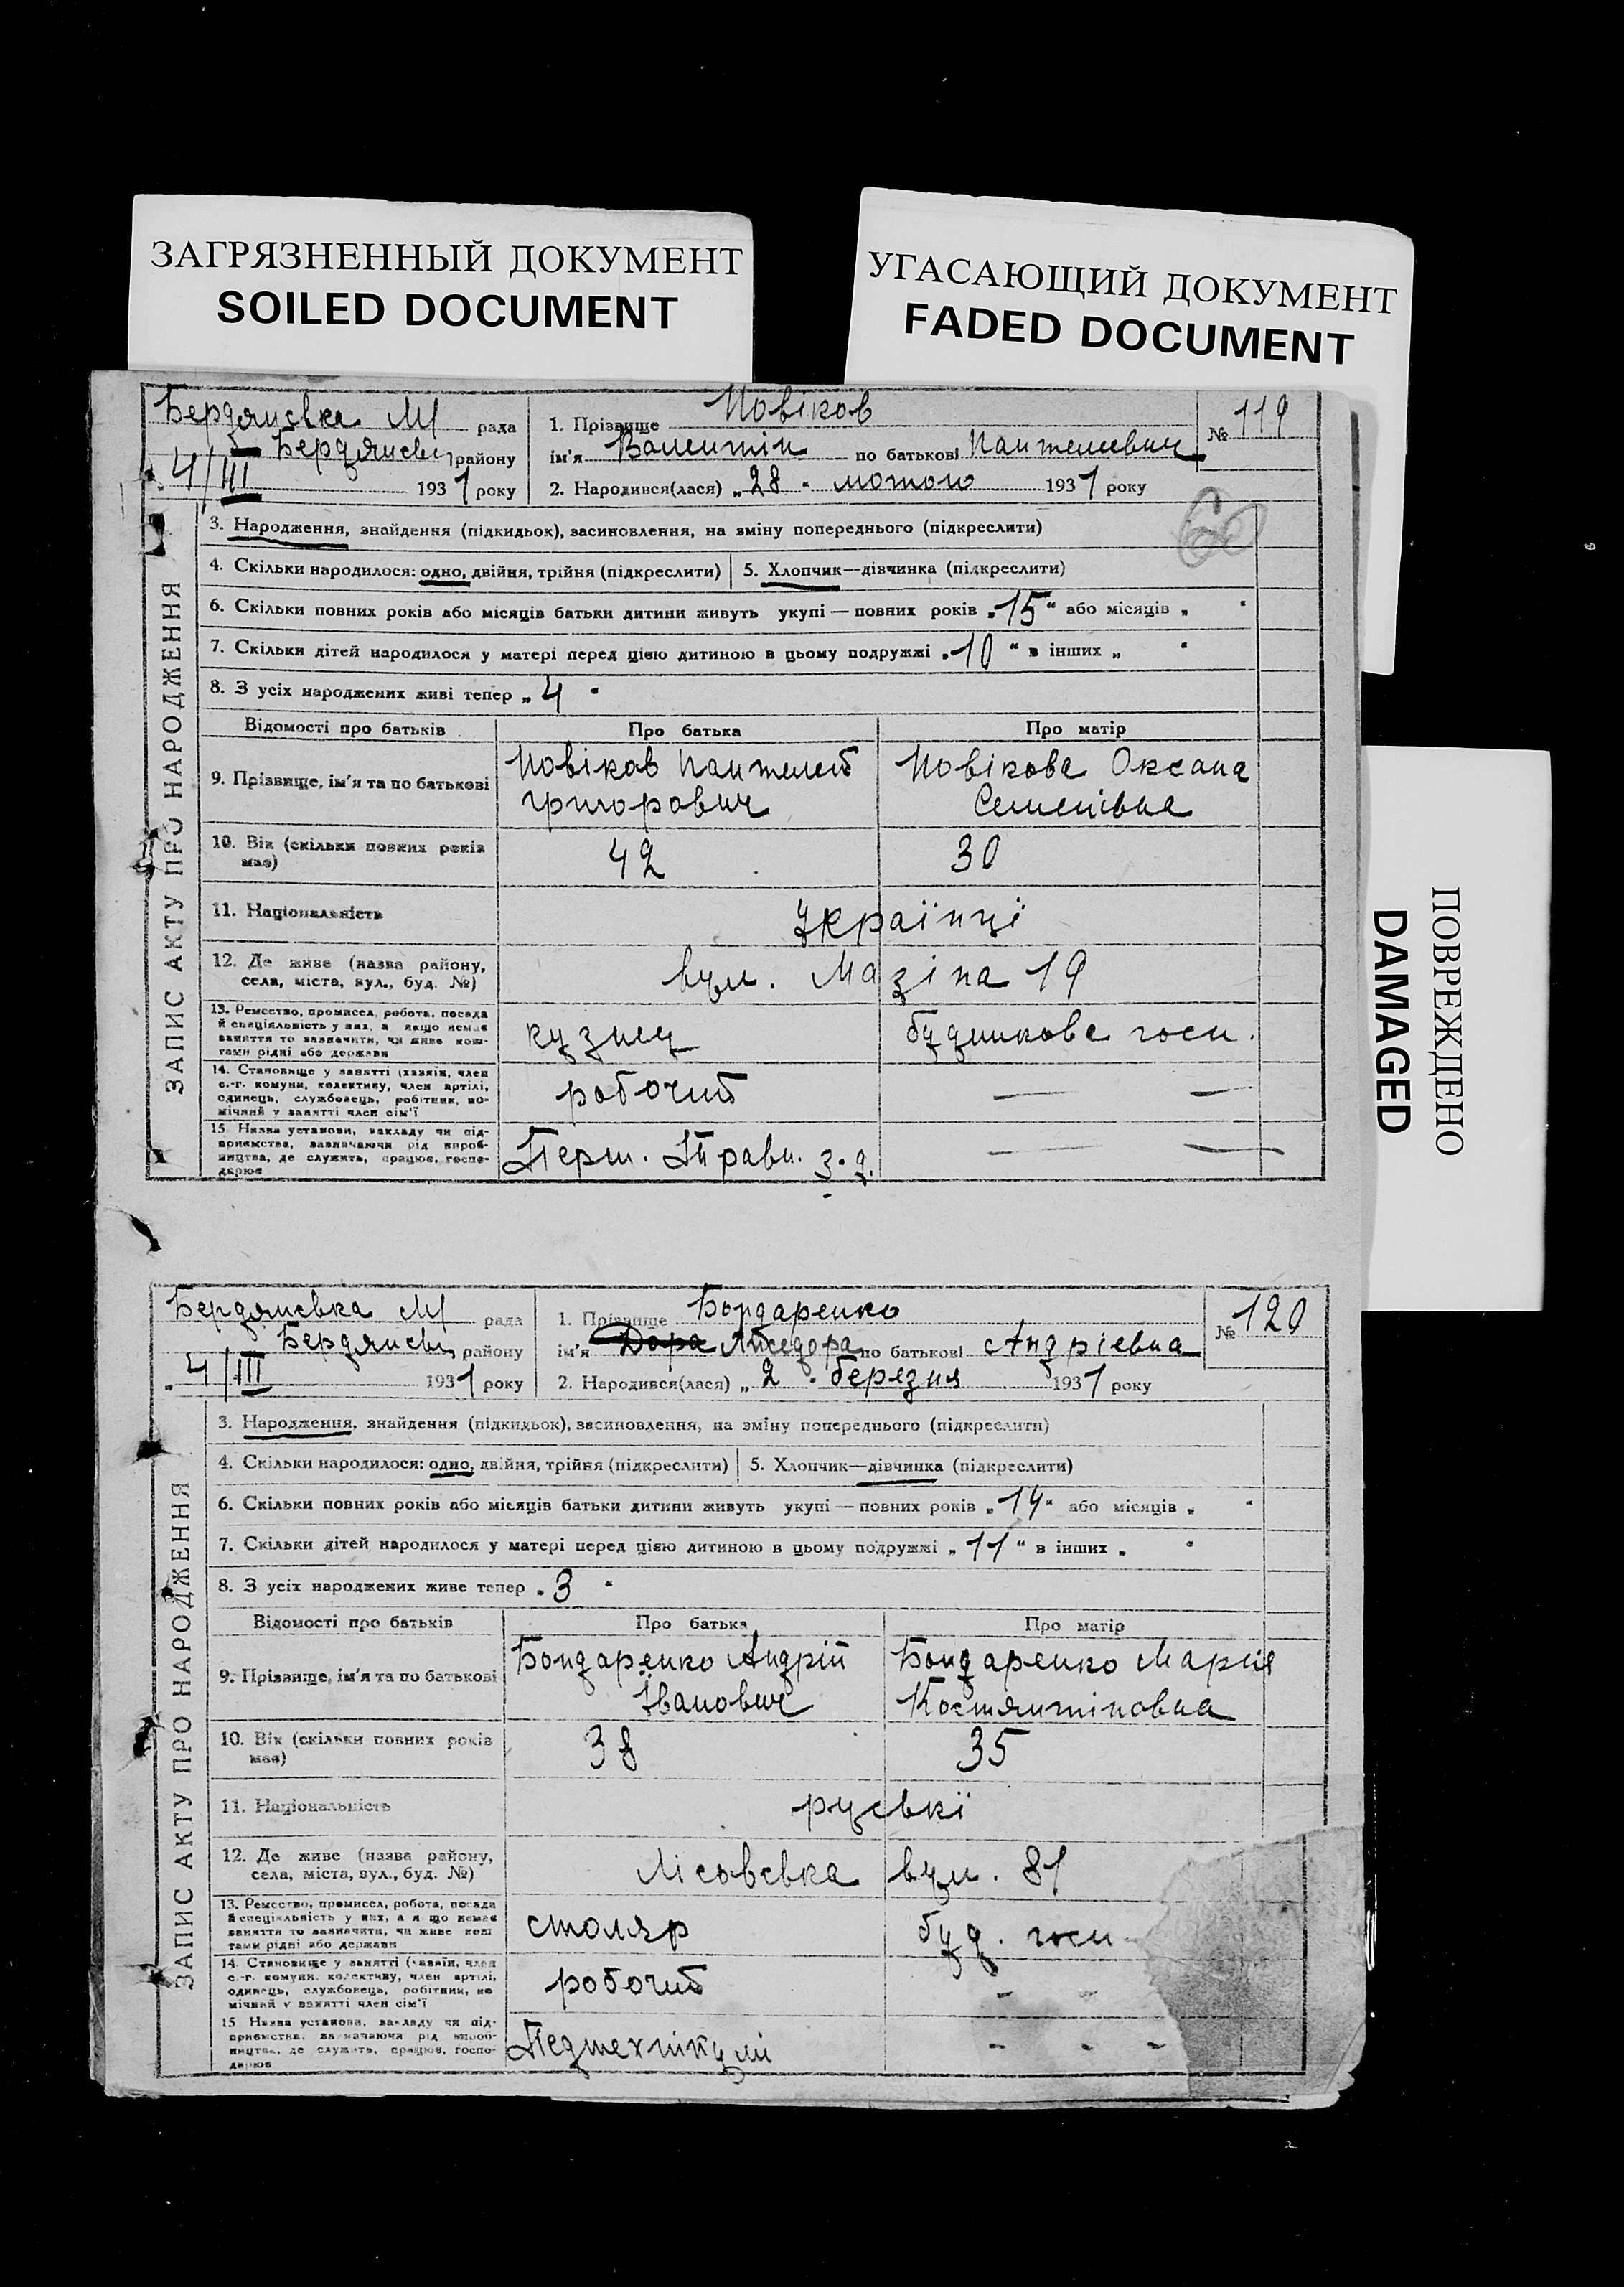 ЗАГРЯЗНЕННЫЙ ДОКУМЕНТ
SOILED DOCUMENT
УГАСАЮЩИЙ ДОКУМЕНТ
FADED DOCUMENT
ПОВРЕЖДЕНО
DAMAGED
Бердянська М/ рада
Бердянськ району
4/III 1931 року
1. Прізвище Новіков
ім'я Валентін по батькові Пантелевич
2. Народився(лася) „28" лютого 1931 року
№ 119
ЗАПИС АКТУ ПРО НАРОДЖЕННЯ
3. Народження, знайдення (підкидьок), засиновлення, на зміну попереднього (підкреслити)
4. Скільки народилося: одно, двійня, трійня (підкреслити) 5. Хлопчик—дівчинка (підкреслити)
6. Скільки повних років або місяців батьки дитини живуть укупі — повних років „15" або місяців „ "
7. Скільки дітей народилося у матері перед цією дитиною в цьому подружжі „10" в інших „ "
8. З усіх народжених живі тепер „4"
Відомості про батьків Про батька Про матір
9. Прізвище, ім'я та по батькові Новіков Пантелей Григорович Новікова Оксана Семенівна
10. Вік (скільки повних років має) 42 30
11. Національність Українці
12. Де живе (назва району, села, міста, вул., буд. №) вул. Мазіна 19
13. Ремество, промисел, робота, посада й спеціяльність у них, а якщо немає заняття то зазначити, чи живе коштами рідні або держави кузнец будинкова госп.
14. Становище у занятті (хазяїн, член с.-г. комуни, колективу, член артілі, одинець, службовець, робітник, помічний у занятті член сім'ї робочий — —
15. Назва установи, закладу чи підприємства, зазначаючи рід виробництва, де служить, працює, господарює Перш. Травн. з-д. — —
Бердянська М/ рада
Бердянськ району
4/III 1931 року
1. Прізвище Бондаренко
ім'я Дора по батькові Андріевна
2. Народився(лася) „2" березня 1931 року
№ 120
ЗАПИС АКТУ ПРО НАРОДЖЕННЯ
3. Народження, знайдення (підкидьок), засиновлення, на зміну попереднього (підкреслити)
4. Скільки народилося: одно, двійня, трійня (підкреслити) 5. Хлопчик—дівчинка (підкреслити)
6. Скільки повних років або місяців батьки дитини живуть укупі — повних років „14" або місяців „ "
7. Скільки дітей народилося у матері перед цією дитиною в цьому подружжі „11" в інших „ "
8. З усіх народжених живе тепер „3"
Відомості про батьків Про батька Про матір
9. Прізвище, ім'я та по батькові Бондаренко Андрій Іванович Бондаренко Марія Костянтіновна
10. Вік (скільки повних років має) 38 35
11. Національність руські
12. Де живе (назва району, села, міста, вул., буд. №) Лісовська вул. 81
13. Ремество, промисел, робота, посада й спеціяльність у них, а якщо немає заняття то зазначити, чи живе коштами рідні або держави столяр буд. госп.
14. Становище у занятті (хазяїн, член с.-г. комуни, колективу, член артілі, одинець, службовець, робітник, помічний у занятті член сім'ї робочий - -
15 Назва установи, закладу чи підприємства, зазначаючи рід виробництва, де служить, працює, господарює Педтехнікумі - - -